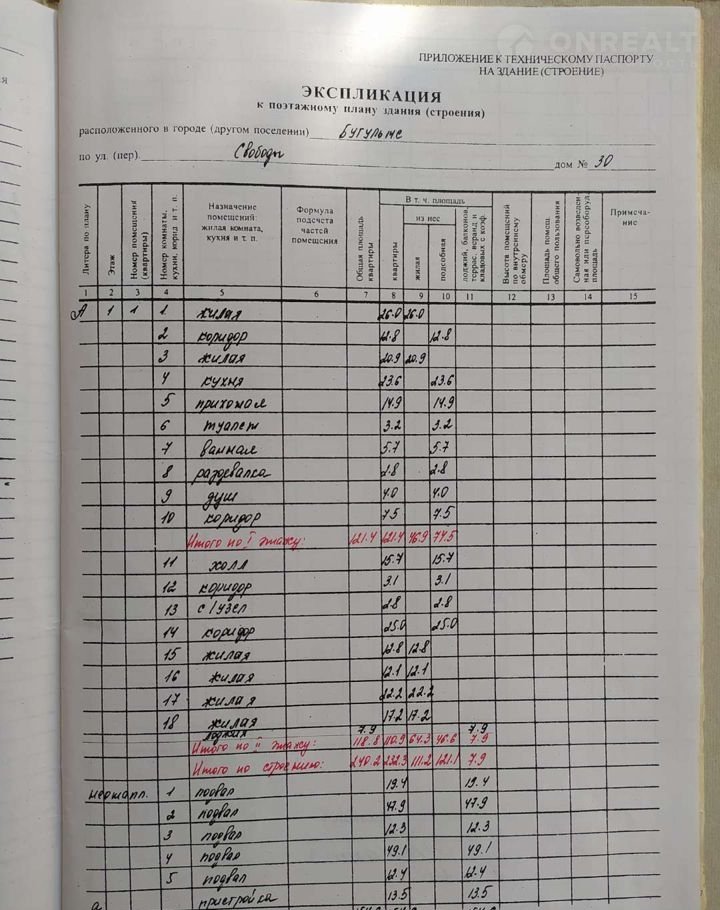 ONREALT
ПРИЛОЖЕНИЕ К ТЕХНИЧЕСКОМУ ПАСПОРТУ
НА ЗДАНИЕ (СТРОЕНИЕ)
ЭКСПЛИКАЦИЯ
к поэтажному плану здания (строения)
расположенного в городе (другом поселении) Бугульме
по ул. (пер). Свободы дом № 30
Литера по плану | Этаж | Номер помещения (квартиры) | Номер комнаты, кухни, корид и т. п. | Назначение помещений: жилая комната, кухня и т. п. | Формула подсчета частей помещения | Общая площадь квартиры | В т. ч. площадь | квартиры | из нее | жилая | подсобная | лоджий, балконов, террас, веранд и кладовых с коэф. | Высота помещений по внутреннему обмеру | Площадь помещ. общего пользования | Самовольно возведенная или переоборуд. площадь | Примечание
1 2 3 4 5 6 7 8 9 10 11 12 13 14 15
А 1 1 1 жилая 26.0 26.0
2 коридор 12.8 12.8
3 жилая 20.9 20.9
4 кухня 23.6 23.6
5 прихожая 14.9 14.9
6 туалет 3.2 3.2
7 ванная 5.7 5.7
8 раздевалка 2.8 2.8
9 душ 4.0 4.0
10 коридор 7.5 7.5
Итого по I этажу: 121.4 121.4 46.9 74.5
11 холл 15.7 15.7
12 коридор 3.1 3.1
13 с/узел 2.8 2.8
14 коридор 25.0 25.0
15 жилая 12.8 12.8
16 жилая 12.1 12.1
17 жилая 22.2 22.2
18 жилая 17.2 17.2
лоджия 7.9 7.9
Итого по II этажу: 118.8 110.9 64.3 46.6 7.9
Итого по строению: 240.2 232.3 111.2 121.1 7.9
неотапл. 1 подвал 19.4 19.4
2 подвал 47.9 47.9
3 подвал 12.3 12.3
4 подвал 49.1 49.1
5 подвал 12.4 12.4
пристройка 13.5 13.5